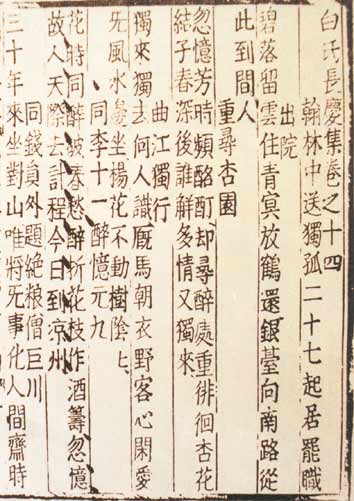 白氏長慶集卷之十四
翰林中送獨孤二十七起居罷職
出院
碧落留雲住青冥放鶴還銀臺向南路從
此到間人
重尋杏園
忽憶芳時頻酩酊却尋醉處重徘徊杏花
結子春深後誰解多情又獨來
曲江獨行
獨來獨去何人識厩馬朝衣野客心閑愛
无風水邊坐楊花不動樹陰〻
同李十一醉憶元九
花時同醉破春愁醉折花枝作酒籌忽憶
故人天際去計程今日到涼州
同錢員外題絶粮僧巨川
三十年來坐對山唯將无事化人間齋時